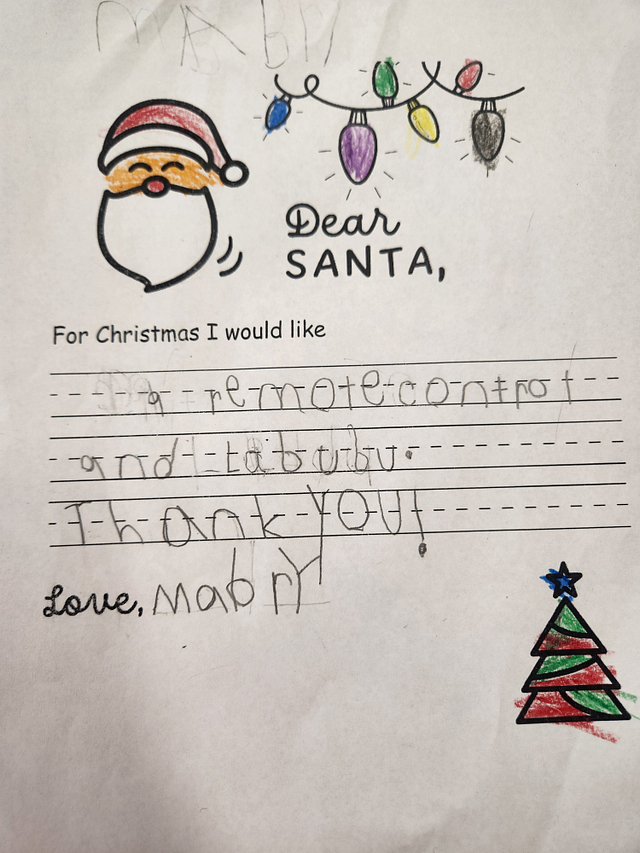 MABrY
Dear
SANTA,
For Christmas I would like
a remote control
and labubu.
Thank YOU!
Love, MabrY